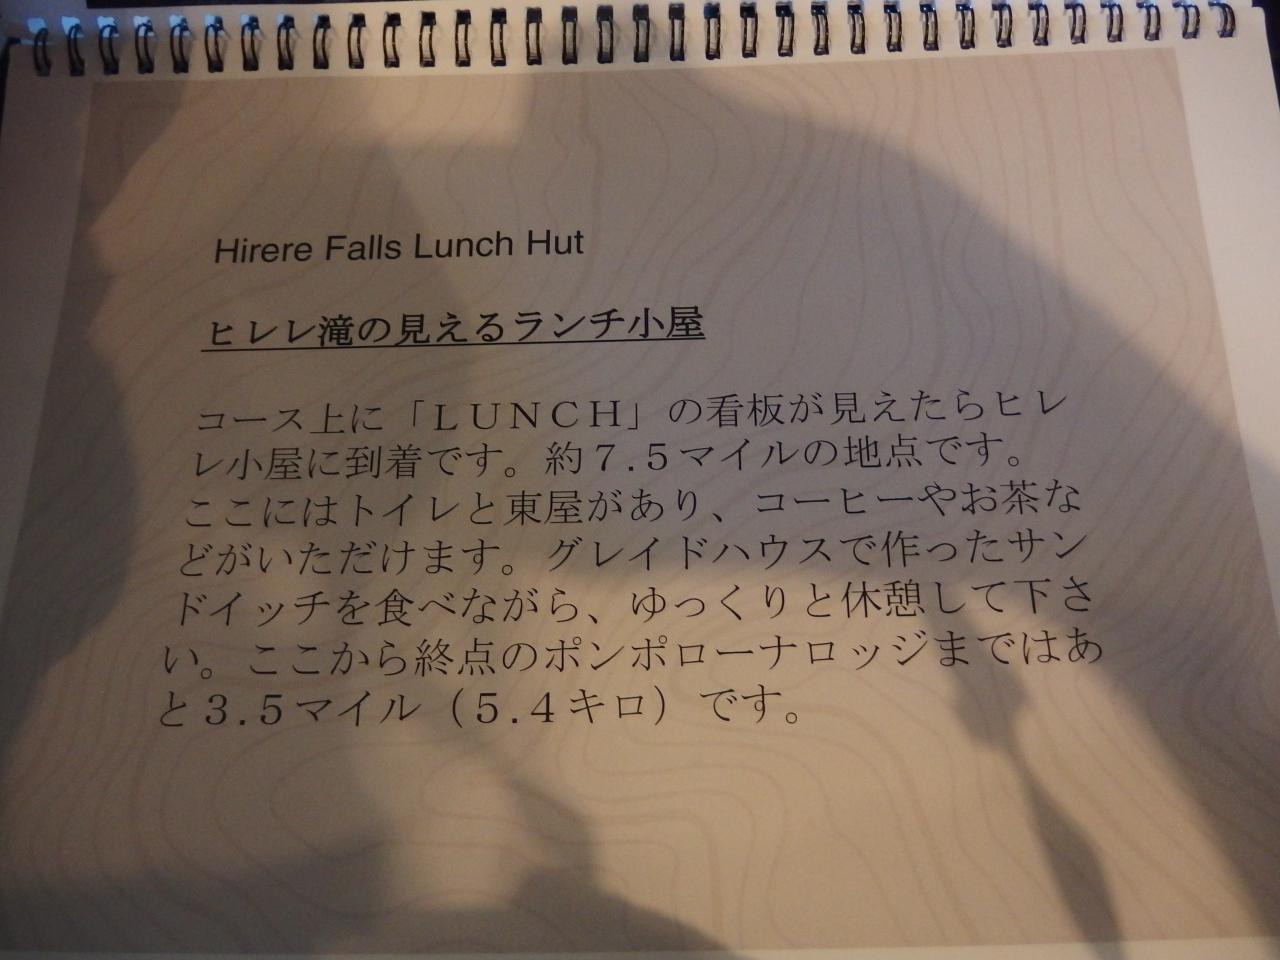 Hirere Falls Lunch Hut
ヒレレ滝の見えるランチ小屋
コース上に「ＬＵＮＣＨ」の看板が見えたらヒレ
レ小屋に到着です。約７.５マイルの地点です。
ここにはトイレと東屋があり、コーヒーやお茶な
どがいただけます。グレイドハウスで作ったサン
ドイッチを食べながら、ゆっくりと休憩して下さ
い。ここから終点のポンポローナロッジまではあ
と３.５マイル（５.４キロ）です。